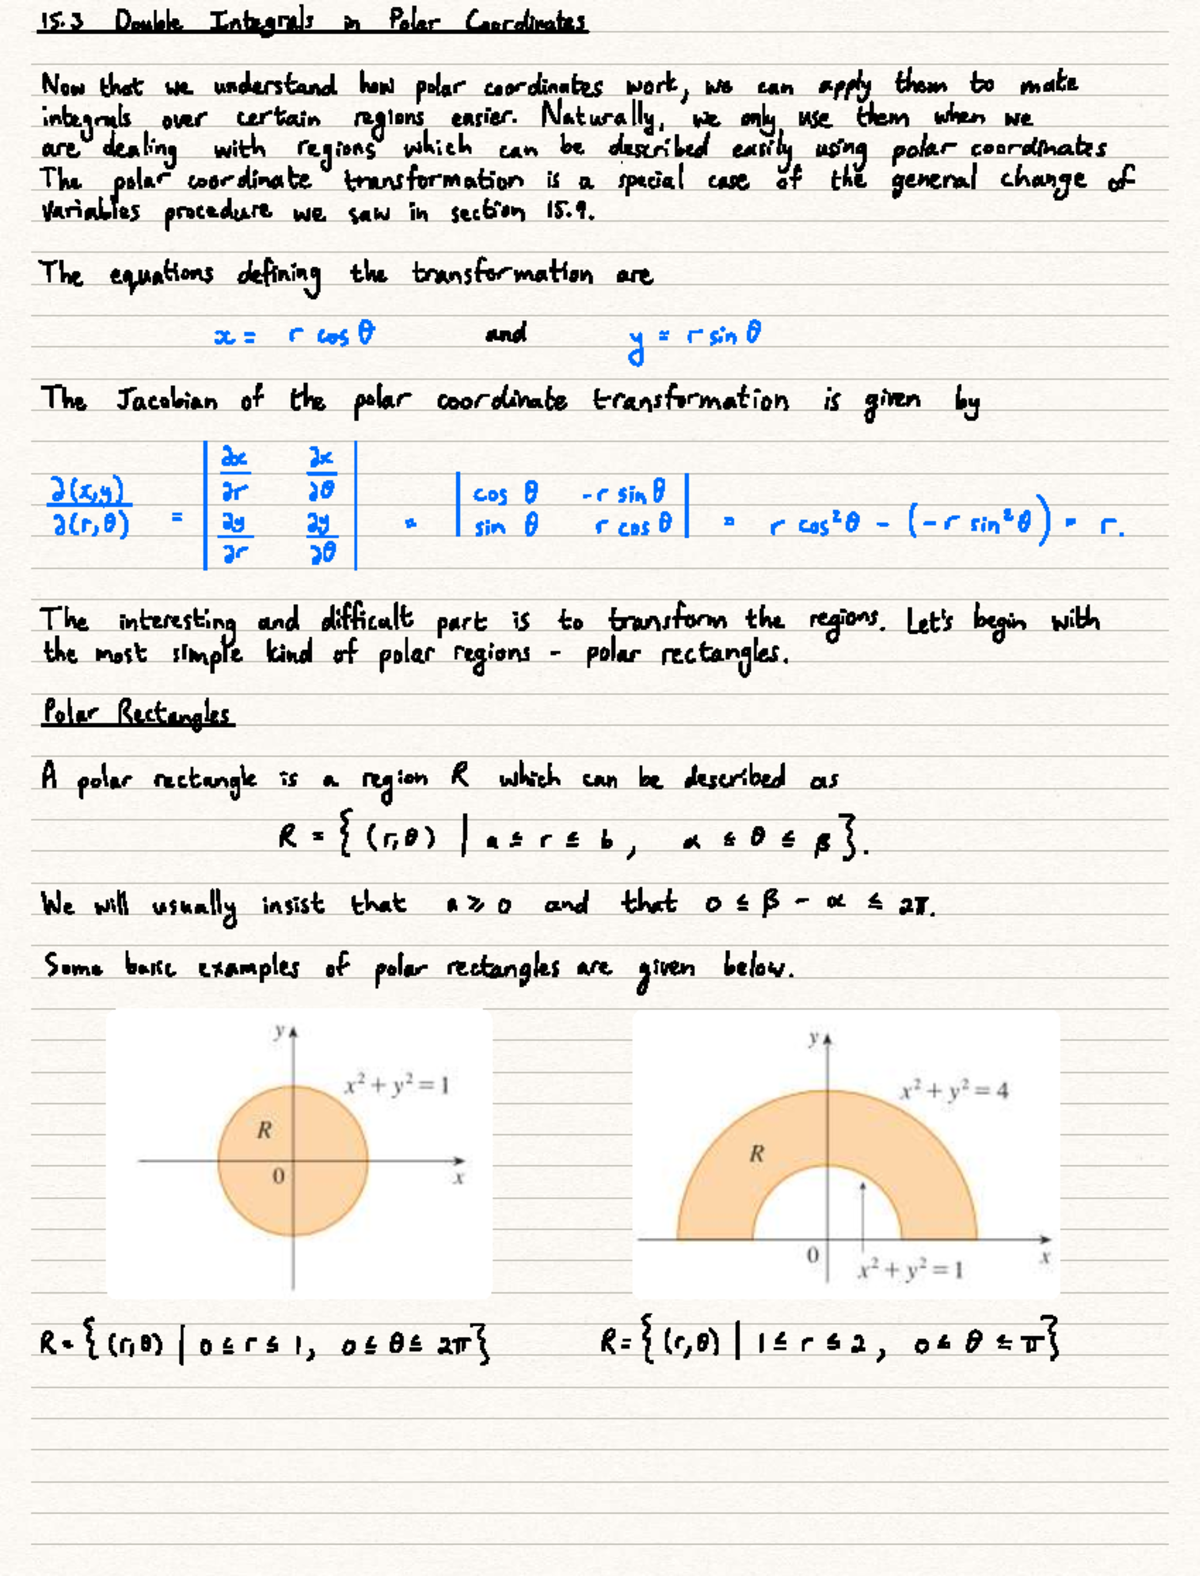 15.3 Double Integrals in Polar Coordinates
Now that we understand how polar coordinates work, we can apply them to make
integrals over certain regions easier. Naturally, we only use them when we
are dealing with regions which can be described easily using polar coordinates
The polar coordinate transformation is a special case of the general change of
variables procedure we saw in section 15.9.
The equations defining the transformation are
x = r cos θ and y = r sin θ
The Jacobian of the polar coordinate transformation is given by
∂(x,y)/∂(r,θ) = | ∂x/∂r ∂x/∂θ ; ∂y/∂r ∂y/∂θ | = | cos θ -r sin θ ; sin θ r cos θ | = r cos²θ - (-r sin²θ) = r.
The interesting and difficult part is to transform the regions. Let's begin with
the most simple kind of polar regions - polar rectangles.
Polar Rectangles
A polar rectangle is a region R which can be described as
R = { (r,θ) | a ≤ r ≤ b, α ≤ θ ≤ β }.
We will usually insist that a ≥ 0 and that 0 ≤ β - α ≤ 2π.
Some basic examples of polar rectangles are given below.
y
x² + y² = 1
R
0
x
y
x² + y² = 4
R
0
x
x² + y² = 1
R = { (r,θ) | 0 ≤ r ≤ 1, 0 ≤ θ ≤ 2π }
R = { (r,θ) | 1 ≤ r ≤ 2, 0 ≤ θ ≤ π }